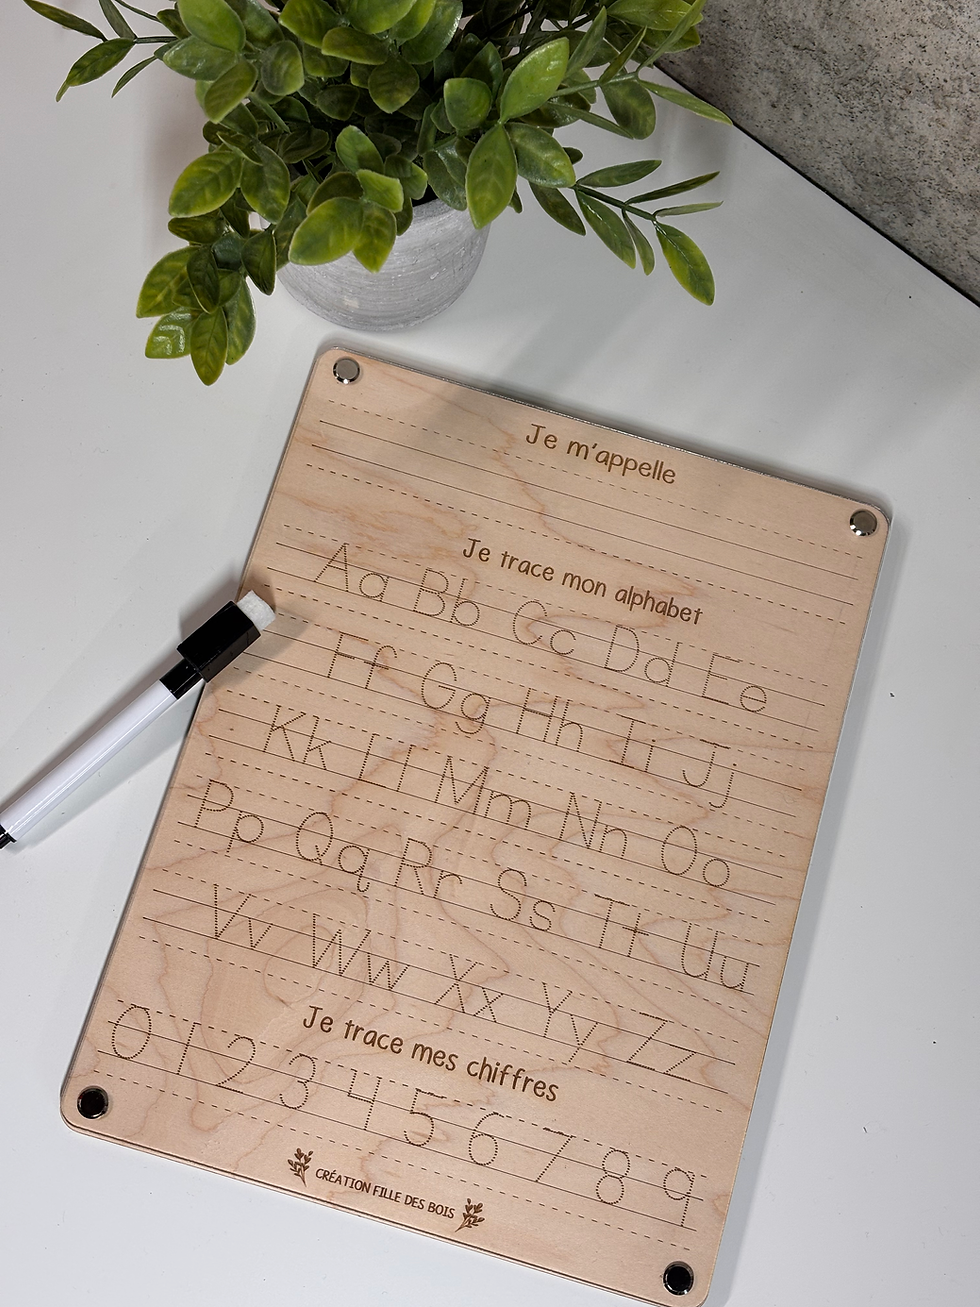 Je m'appelle
Je trace mon alphabet
Aa Bb Cc Dd Ee
Ff Gg Hh Ii Jj
Kk Ll Mm Nn Oo
Pp Qq Rr Ss Tt Uu
Vv Ww Xx Yy Zz
Je trace mes chiffres
0 1 2 3 4 5 6 7 8 9
CRÉATION FILLE DES BOIS